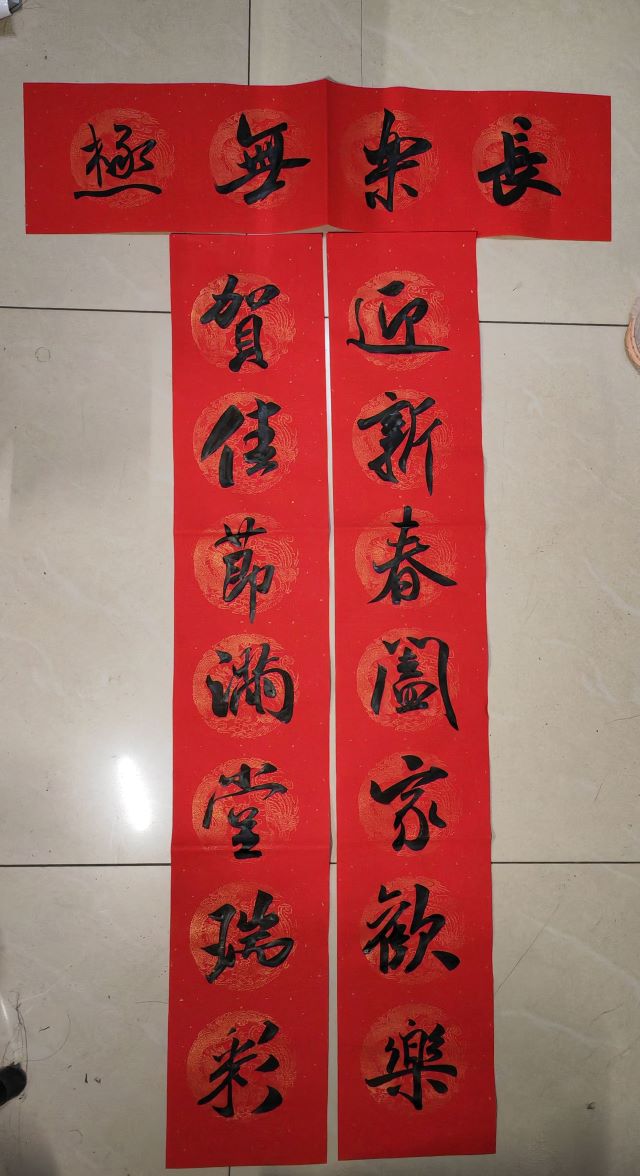 長樂無極
迎新春闔家歡樂
賀佳節滿堂瑞彩